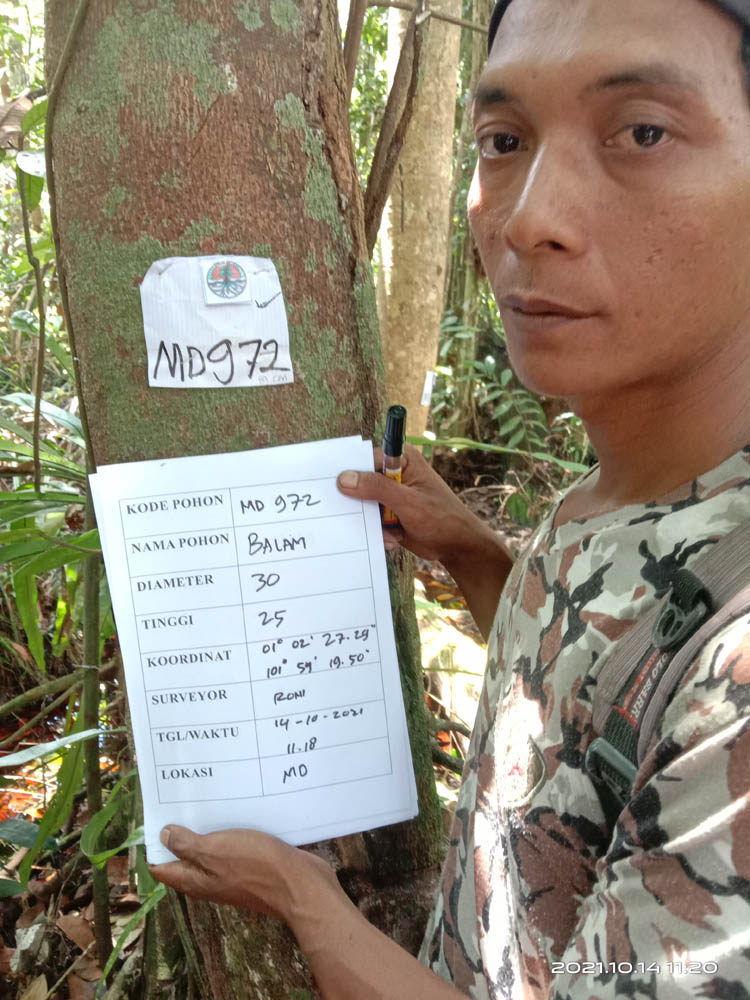 MD972
KODE POHON MD 972
NAMA POHON BALAM
DIAMETER 30
TINGGI 25
KOORDINAT 01° 02' 27.29"
101° 59' 19.50"
SURVEYOR RONI
TGL/WAKTU 14-10-2021
11.18
LOKASI MD
2021.10.14 11:20